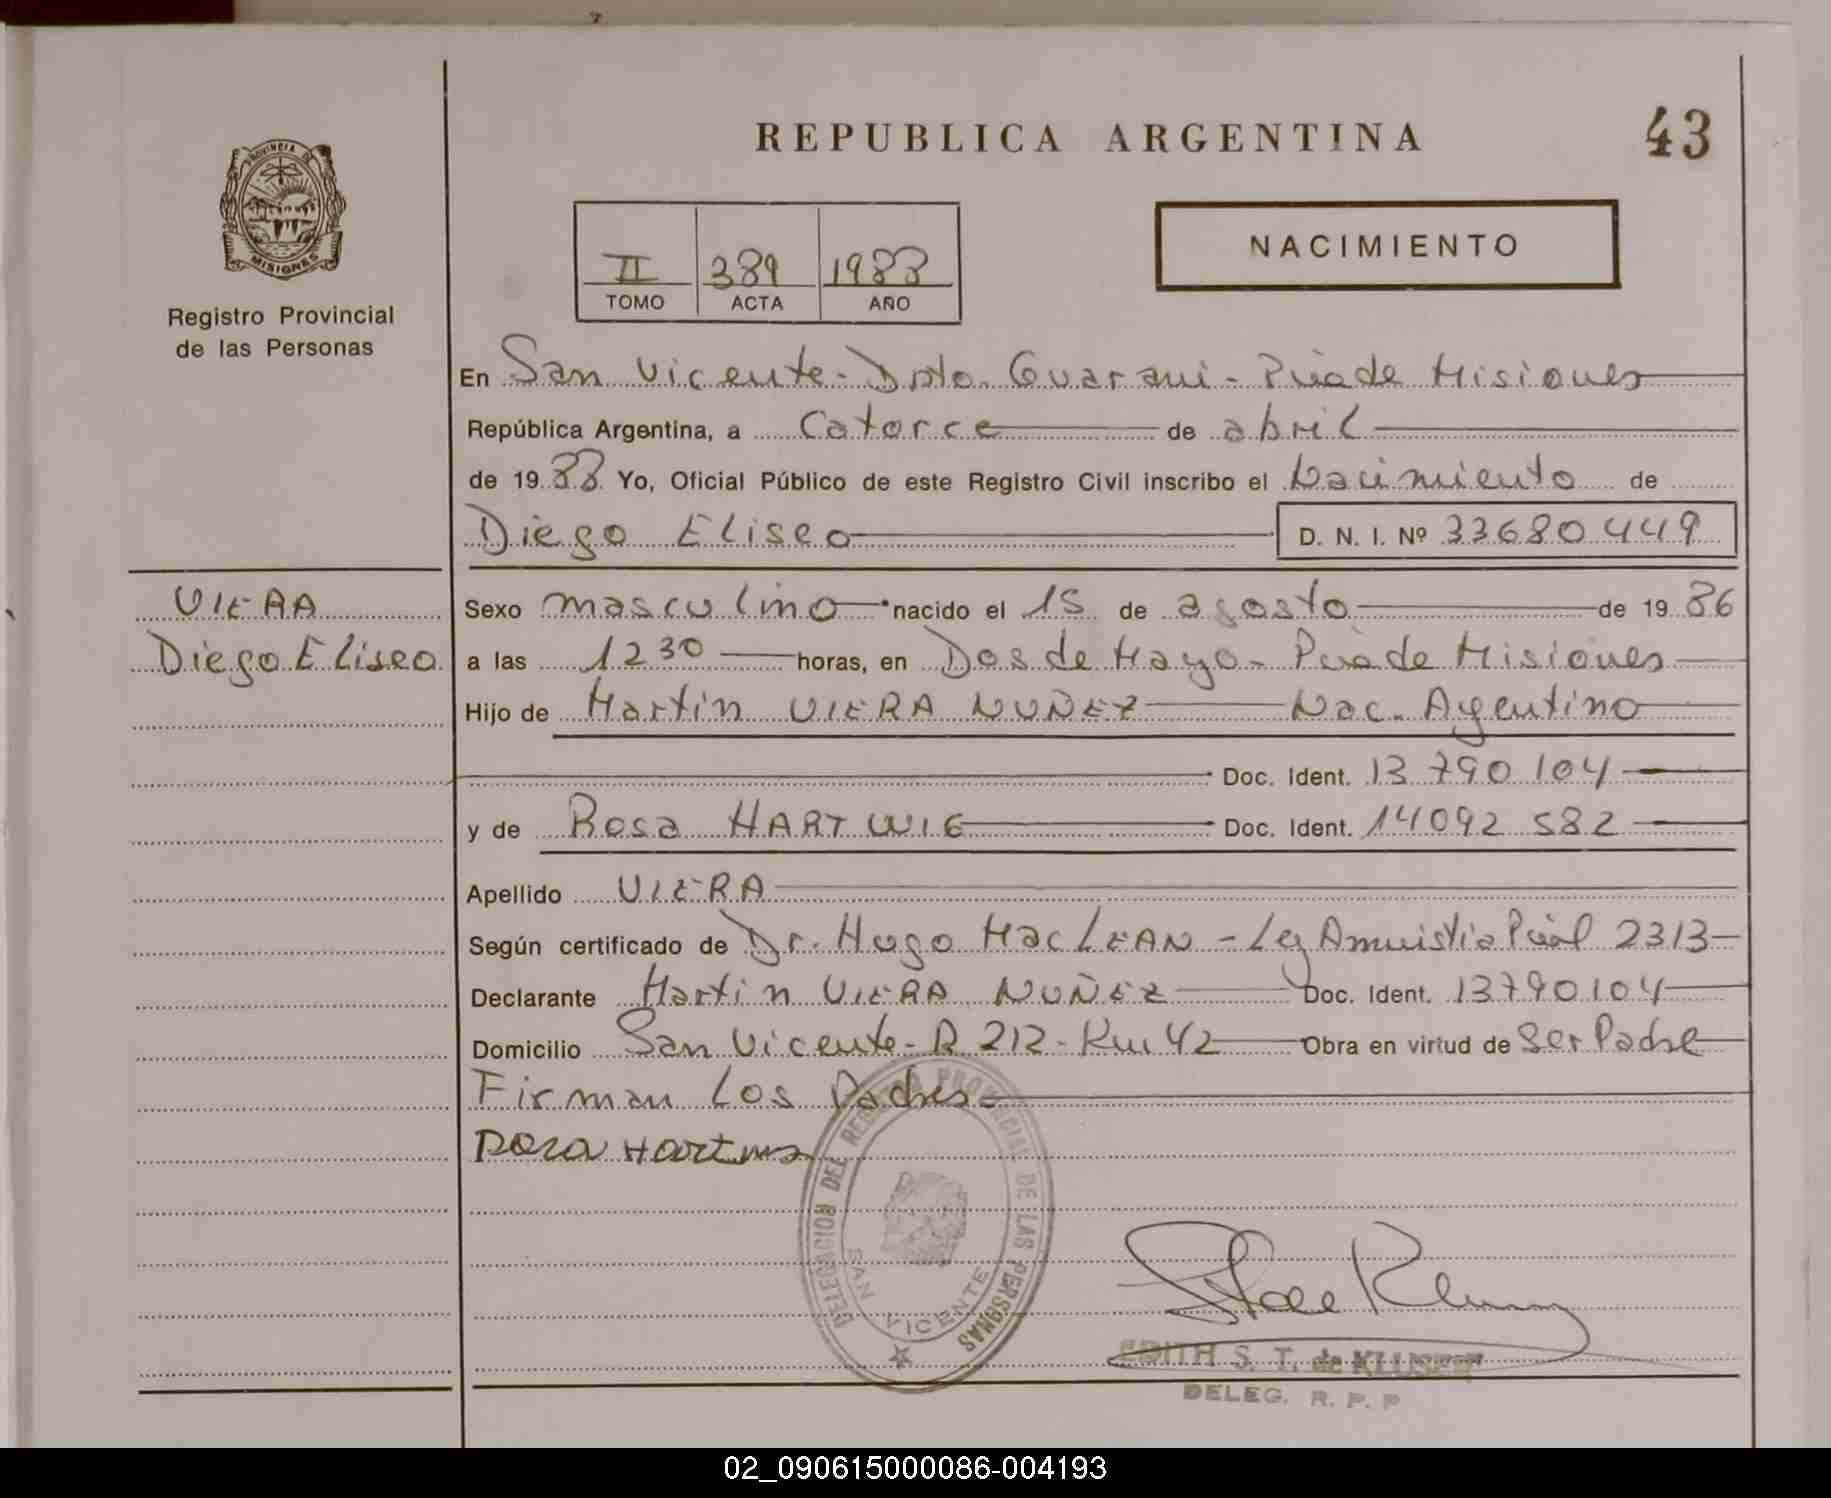 REPUBLICA ARGENTINA
43
PROVINCIA DE
MISIONES
Registro Provincial
de las Personas
II 389 1988
TOMO ACTA AÑO
NACIMIENTO
En San Vicente - Dpto. Guarani - Pcia de Misiones
República Argentina, a Catorce de abril
de 1988 Yo, Oficial Público de este Registro Civil inscribo el Nacimiento de
Diego Eliseo D. N. I. Nº 33680449
VIERA
Diego Eliseo
Sexo masculino nacido el 15 de agosto de 1986
a las 12 30 horas, en Dos de Mayo - Pcia de Misiones
Hijo de Martín VIERA NUÑEZ Nac. Argentino
Doc. Ident. 13 790 104
y de Rosa HARTWIG Doc. Ident. 14092 582
Apellido VIERA
Según certificado de Dr. Hugo MacLEAN - Ley Amnistia Pcial 2313
Declarante Martin VIERA NUÑEZ Doc. Ident. 13790104
Domicilio San Vicente - R 212 - Km 42 Obra en virtud de Ser Padre
Firman Los Padres
Rosa Hartwig
DELEGACION DEL REGISTRO PROVINCIAL DE LAS PERSONAS
SAN VICENTE
EDITH S. T. de
DELEG. R. P. P
02_090615000086-004193